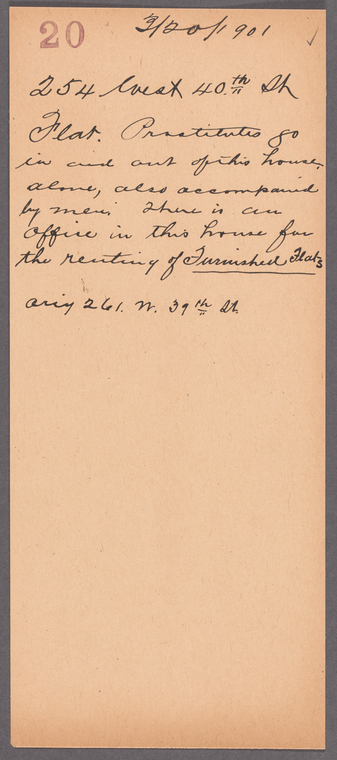 20 3/20/1901 ✓
254 West 40th St
Flat. Prostitutes go
in and out of this house,
alone, also accompanied
by men. There is an
office in this house for
the renting of Furnished Flats
orig 261. W. 39th St.